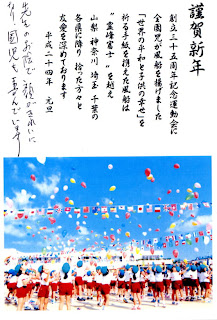 謹賀新年
創立二十五周年記念運動会に
全園児が風船を揚げました
「世界の平和と子供の幸せ」を
祈る手紙を携えた風船は
"霊峰富士"を越え
山梨 神奈川 埼玉 千葉の
各県に降り 拾った方々と
友愛を深めております
平成二十四年 元旦
先生のお陰で 顔がきれいに
なり 園児も喜んでいます